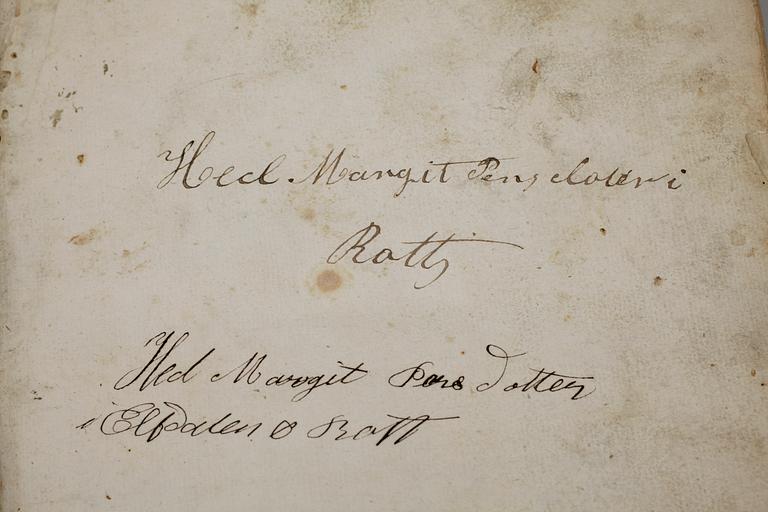 Hed Margit Pers doter i
Rott
Hed Margit Pers Dotter
i Elfdalen o Rott